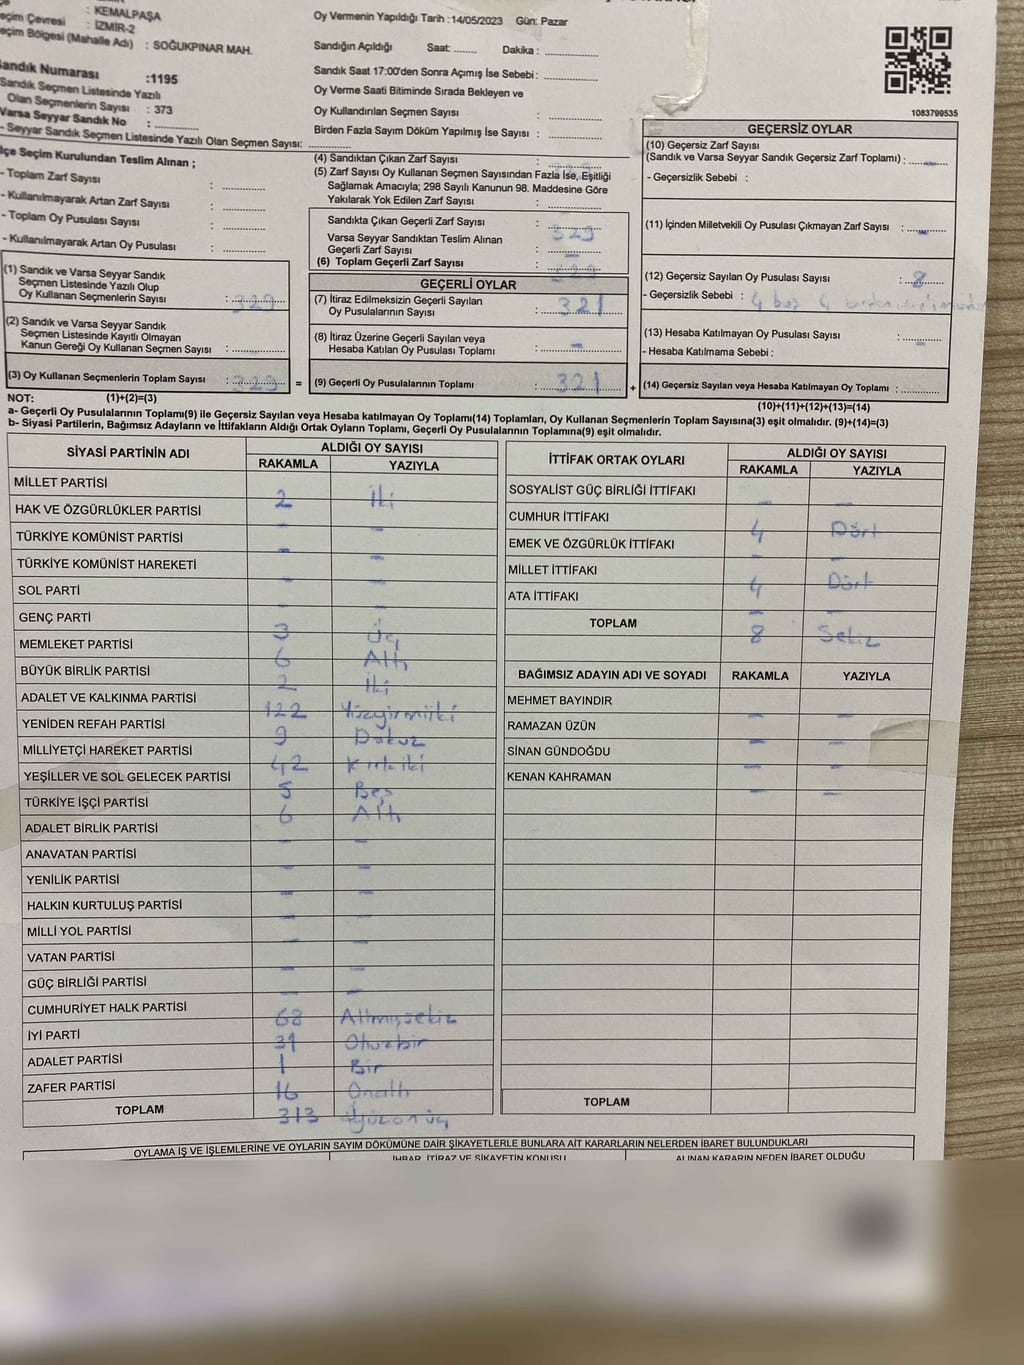 : KEMALPAŞA
eçim Çevresi : İZMİR-2
eçim Bölgesi (Mahalle Adı) : SOĞUKPINAR MAH.
andık Numarası :1195
Sandık Seçmen Listesinde Yazılı
Olan Seçmenlerin Sayısı : 373
Varsa Seyyar Sandık No :
- Seyyar Sandık Seçmen Listesinde Yazılı Olan Seçmen Sayısı:
lçe Seçim Kurulundan Teslim Alınan ;
- Toplam Zarf Sayısı :
- Kullanılmayarak Artan Zarf Sayısı :
- Toplam Oy Pusulası Sayısı :
- Kullanılmayarak Artan Oy Pusulası :
(1) Sandık ve Varsa Seyyar Sandık
Seçmen Listesinde Yazılı Olup
Oy Kullanan Seçmenlerin Sayısı : 329
(2) Sandık ve Varsa Seyyar Sandık
Seçmen Listesinde Kayıtlı Olmayan
Kanun Gereği Oy Kullanan Seçmen Sayısı :
(3) Oy Kullanan Seçmenlerin Toplam Sayısı : 329 =
Oy Vermenin Yapıldığı Tarih :14/05/2023 Gün: Pazar
Sandığın Açıldığı Saat: Dakika :
Sandık Saat 17:00'den Sonra Açımış İse Sebebi :
Oy Verme Saati Bitiminde Sırada Bekleyen ve
Oy Kullandırılan Seçmen Sayısı :
Birden Fazla Sayım Döküm Yapılmış İse Sayısı :
(4) Sandıktan Çıkan Zarf Sayısı :
(5) Zarf Sayısı Oy Kullanan Seçmen Sayısından Fazla İse, Eşitliği
Sağlamak Amacıyla; 298 Sayılı Kanunun 98. Maddesine Göre
Yakılarak Yok Edilen Zarf Sayısı :
Sandıkta Çıkan Geçerli Zarf Sayısı : 329
Varsa Seyyar Sandıktan Teslim Alınan
Geçerli Zarf Sayısı : -
(6) Toplam Geçerli Zarf Sayısı : 329
GEÇERLİ OYLAR
(7) İtiraz Edilmeksizin Geçerli Sayılan
Oy Pusulalarının Sayısı : 321
(8) İtiraz Üzerine Geçerli Sayılan veya
Hesaba Katılan Oy Pusulası Toplamı : -
(9) Geçerli Oy Pusulalarının Toplamı : 321 +
1083799535
GEÇERSİZ OYLAR
(10) Geçersiz Zarf Sayısı
(Sandık ve Varsa Seyyar Sandık Geçersiz Zarf Toplamı) : -
- Geçersizlik Sebebi :
(11) İçinden Milletvekili Oy Pusulası Çıkmayan Zarf Sayısı : -
(12) Geçersiz Sayılan Oy Pusulası Sayısı : 8
- Geçersizlik Sebebi : 4 boş 4
(13) Hesaba Katılmayan Oy Pusulası Sayısı : -
- Hesaba Katılmama Sebebi :
(14) Geçersiz Sayılan veya Hesaba Katılmayan Oy Toplamı :
NOT: (1)+(2)=(3) (10)+(11)+(12)+(13)=(14)
a- Geçerli Oy Pusulalarının Toplamı(9) ile Geçersiz Sayılan veya Hesaba katılmayan Oy Toplamı(14) Toplamları, Oy Kullanan Seçmenlerin Toplam Sayısına(3) eşit olmalıdır. (9)+(14)=(3)
b- Siyasi Partilerin, Bağımsız Adayların ve İttifakların Aldığı Ortak Oyların Toplamı, Geçerli Oy Pusulalarının Toplamına(9) eşit olmalıdır.
SİYASİ PARTİNİN ADI ALDIĞI OY SAYISI
RAKAMLA YAZIYLA
MİLLET PARTİSİ 2 İki
HAK VE ÖZGÜRLÜKLER PARTİSİ - -
TÜRKİYE KOMÜNİST PARTİSİ - -
TÜRKİYE KOMÜNİST HAREKETİ - -
SOL PARTİ - -
GENÇ PARTİ 3 Üç
MEMLEKET PARTİSİ 6 Altı
BÜYÜK BİRLİK PARTİSİ 2 İki
ADALET VE KALKINMA PARTİSİ 122 Yüzyirmiiki
YENİDEN REFAH PARTİSİ 9 Dokuz
MİLLİYETÇİ HAREKET PARTİSİ 42 Kırkiki
YEŞİLLER VE SOL GELECEK PARTİSİ 5 Beş
TÜRKİYE İŞÇİ PARTİSİ 6 Altı
ADALET BİRLİK PARTİSİ - -
ANAVATAN PARTİSİ - -
YENİLİK PARTİSİ - -
HALKIN KURTULUŞ PARTİSİ - -
MİLLİ YOL PARTİSİ - -
VATAN PARTİSİ - -
GÜÇ BİRLİĞİ PARTİSİ - -
CUMHURİYET HALK PARTİSİ 68 Altmışsekiz
İYİ PARTİ 31 Otuzbir
ADALET PARTİSİ 1 Bir
ZAFER PARTİSİ 16 Onaltı
TOPLAM 313 Üçyüzon üç
İTTİFAK ORTAK OYLARI ALDIĞI OY SAYISI
RAKAMLA YAZIYLA
SOSYALİST GÜÇ BİRLİĞİ İTTİFAKI - -
CUMHUR İTTİFAKI 4 Dört
EMEK VE ÖZGÜRLÜK İTTİFAKI - -
MİLLET İTTİFAKI 4 Dört
ATA İTTİFAKI - -
TOPLAM 8 Sekiz
BAĞIMSIZ ADAYIN ADI VE SOYADI RAKAMLA YAZIYLA
MEHMET BAYINDIR - -
RAMAZAN ÜZÜN - -
SİNAN GÜNDOĞDU - -
KENAN KAHRAMAN - -
TOPLAM
OYLAMA İŞ VE İŞLEMLERİNE VE OYLARIN SAYIM DÖKÜMÜNE DAİR ŞİKAYETLERLE BUNLARA AİT KARARLARIN NELERDEN İBARET BULUNDUKLARI
İHBAR, İTİRAZ VE ŞİKAYETİN KONUSU ALINAN KARARIN NEDEN İBARET OLDUĞU